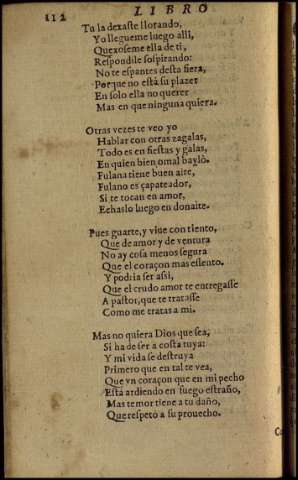 112 LIBRO
Tu la dexaste llorando,
Yo llegueme luego alli,
Quexoseme ella de ti,
Respondile sospirando:
No te espantes desta fiera,
Porque no está su plazer
En solo ella no querer
Mas en que ninguna quiera.
Otras vezes te veo yo
Hablar con otras zagalas,
Todo es en fiestas y galas,
En quien bien o mal baylò.
Fulana tiene buen aire,
Fulano es çapateador,
Si te tocan en amor,
Echaslo luego en donaire.
Pues guarte, y viue con tiento,
Que de amor y de ventura
No ay cosa menos segura
Que el coraçon mas essento.
Y podria ser assi,
Que el crudo amor te entregasse
A pastor, que te tratasse
Como me tratas a mi.
Mas no quiera Dios que sea,
Si ha de ser a costa tuya:
Y mi vida se destruya
Primero que en tal te vea,
Que vn coraçon que en mi pecho
Está ardiendo en fuego estraño,
Mas temor tiene a tu daño,
Que respeto a su prouecho.